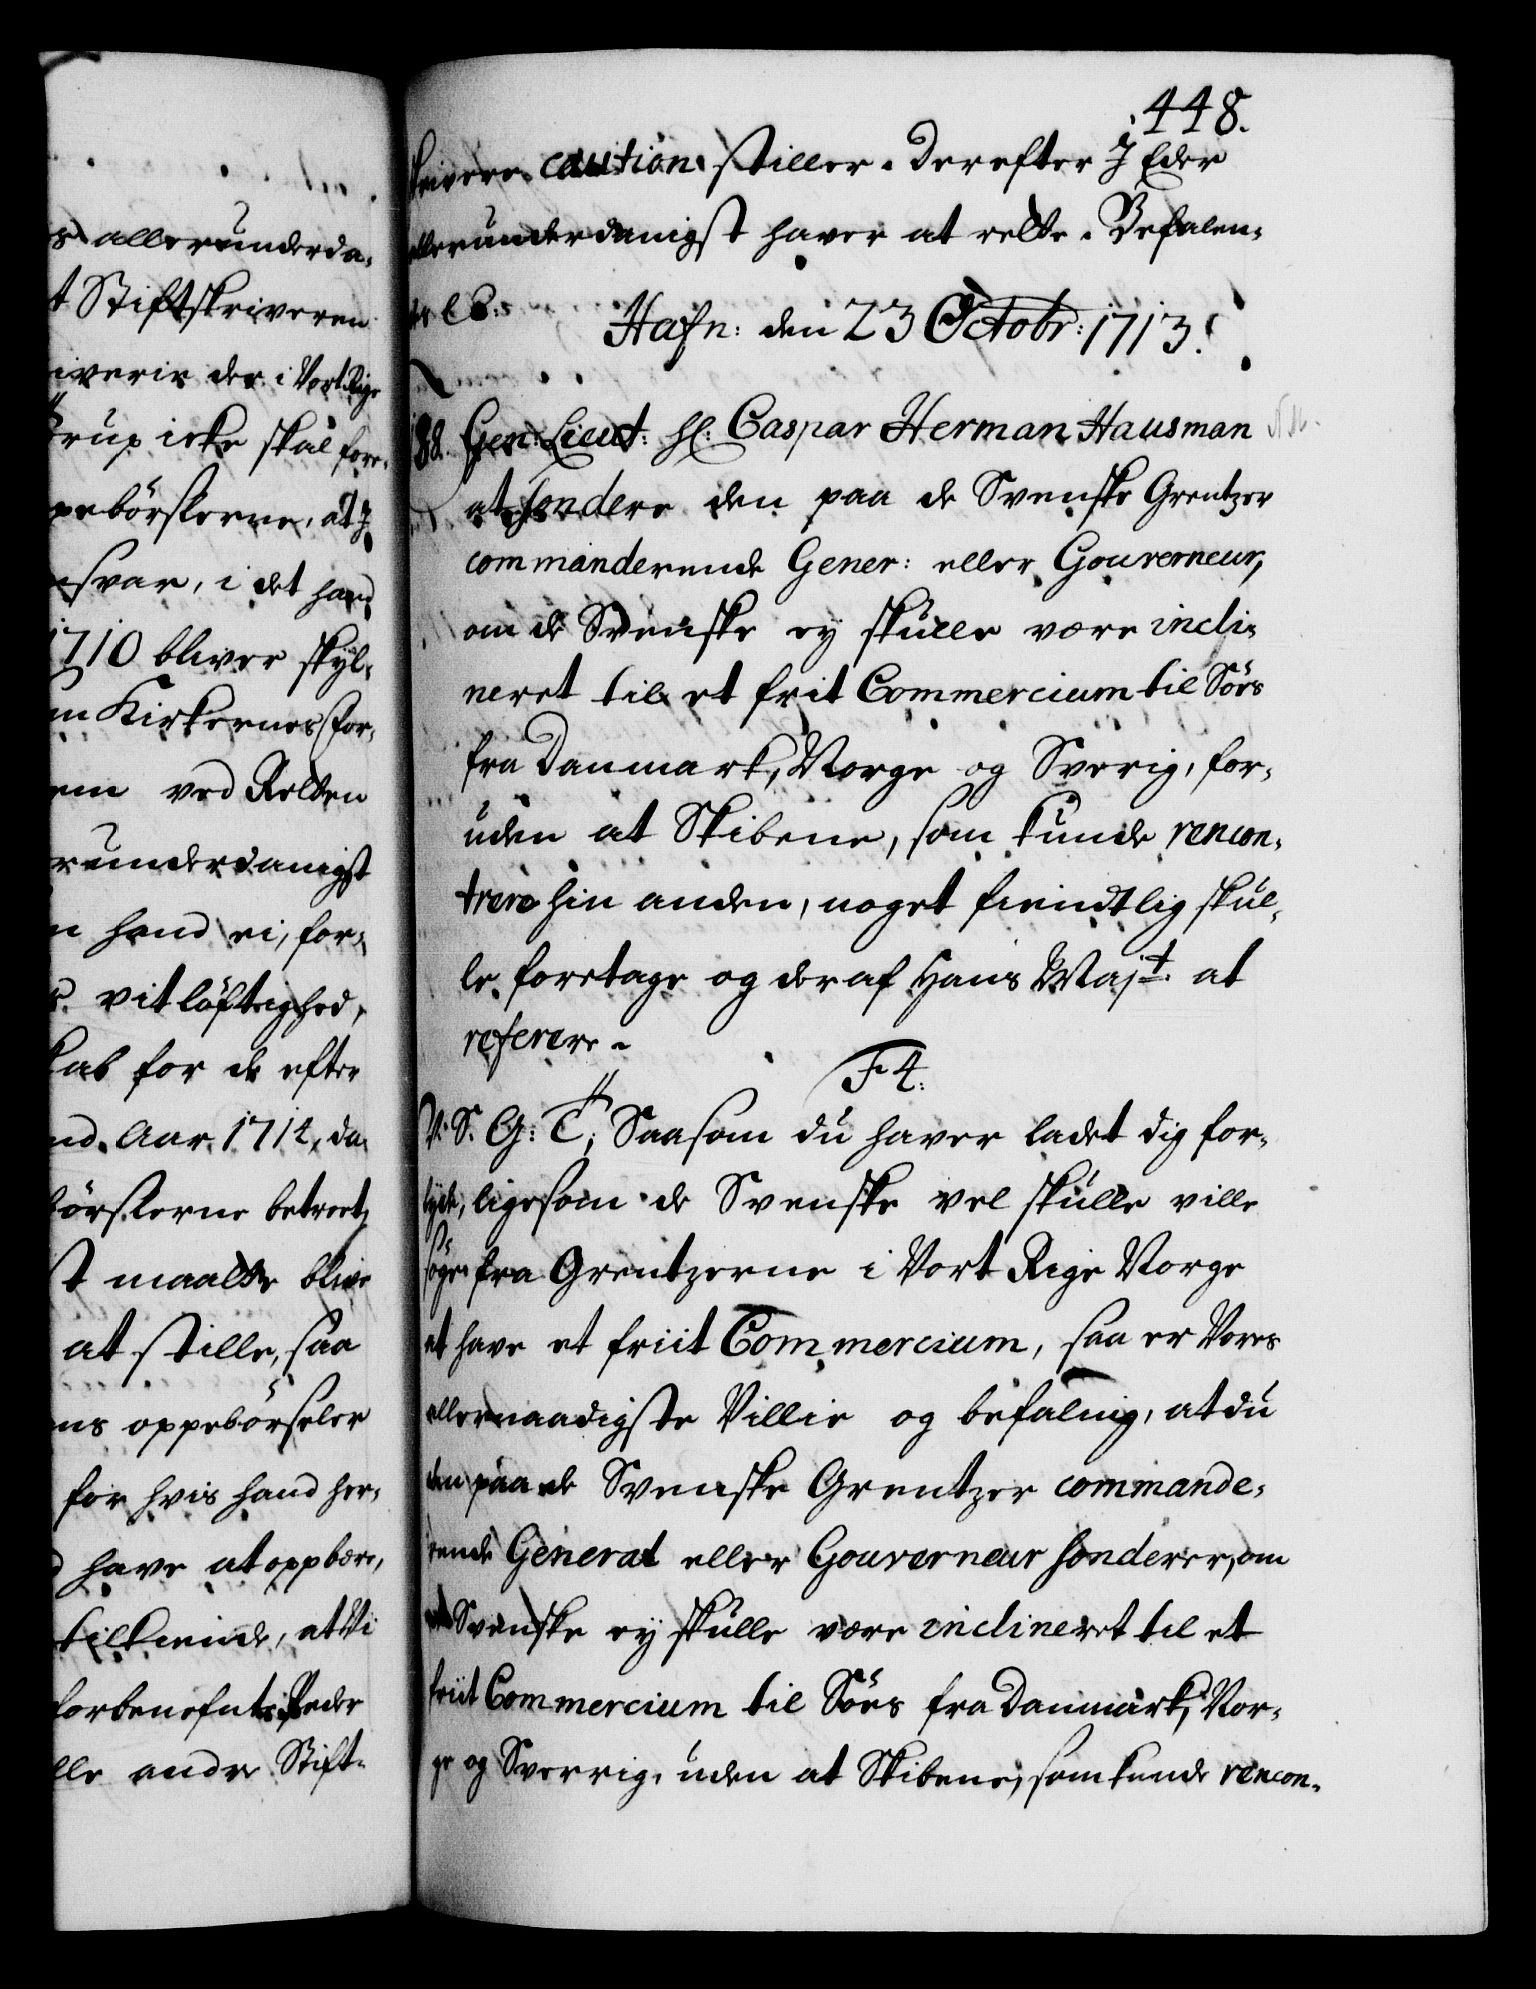 s allerunderda-
t Stiftskriveren
iverie der i Vort Rige
rup icke skal fore-
pebörskerne, at J
nsvar, i det hand
1710 bliver skyl-
n Kirkernes for-
em ved Retten
runderdanigst
n hand ei, for-
vitlöftighed,
kab for de efter
nd. Aar 1714, da
börskerne betroet,
st maatte blive
at stille, saa
ns oppebörseler
for hvis hand her-
have at oppbære,
tilkiende, at Vi
forbenefnte Peder
lle andre Stift-
448.
skrivere caution stiller. Derefter J Eder
allerunderdanigst haver at rette. Befalen-
des &c:
Hafn: den 23 Octobr: 1713.
88. Gen: Lieut: Hr: Caspar Herman Hausman
at sondere den paa de Svenske Grentzer
commanderende Gener: eller Gouverneur,
om de Svenske ey skulle være incli-
neret til et frit Commercium til Söes
fra Danmark, Norge og Sverig, for-
uden at Skibene, som kunde rencon-
trere hin anden, noget fiendtlig skul-
le foretage og deraf Hans Majt. at
referere.
F4:
V. S. G: T; Saasom du haver ladet dig for-
lyde, ligesom de Svenske vel skulle ville
söge fra Grentzerne i Vort Rige Norge
at have et friit Commercium, saa er Vores
allernaadigste Villie og befaling, at du
den paa de Svenske Grentzer commande-
rende General eller Gouverneur sonderer, om
de Svenske ey skulle være inclineret til et
friit Commercium til Söes fra Danmark, Nor-
ge og Sverrig, uden at Skibene, som kunde rencon-